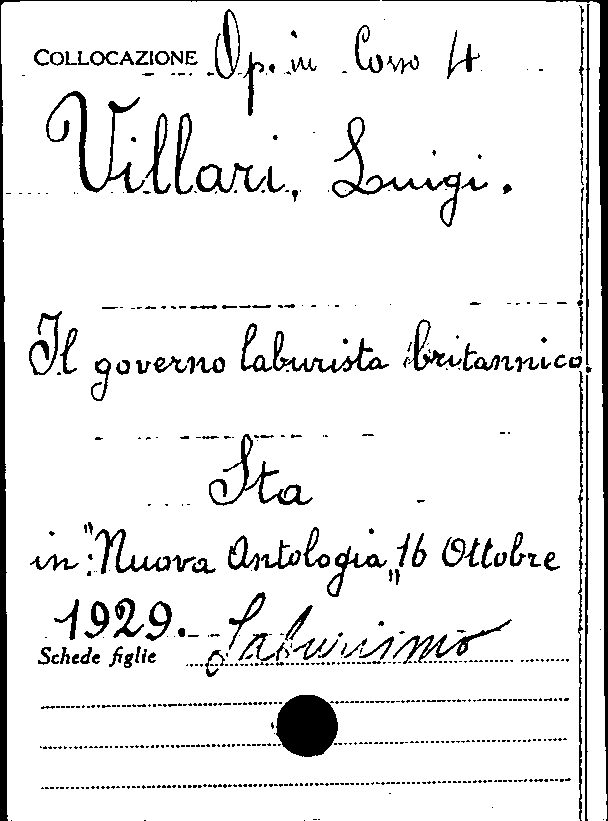 COLLOCAZIONE Op. in Corso 4
Villari, Luigi.
Il governo laburista britannico.
Sta
in: "Nuova Antologia„ 16 Ottobre
1929.
Schede figlie Laburismo